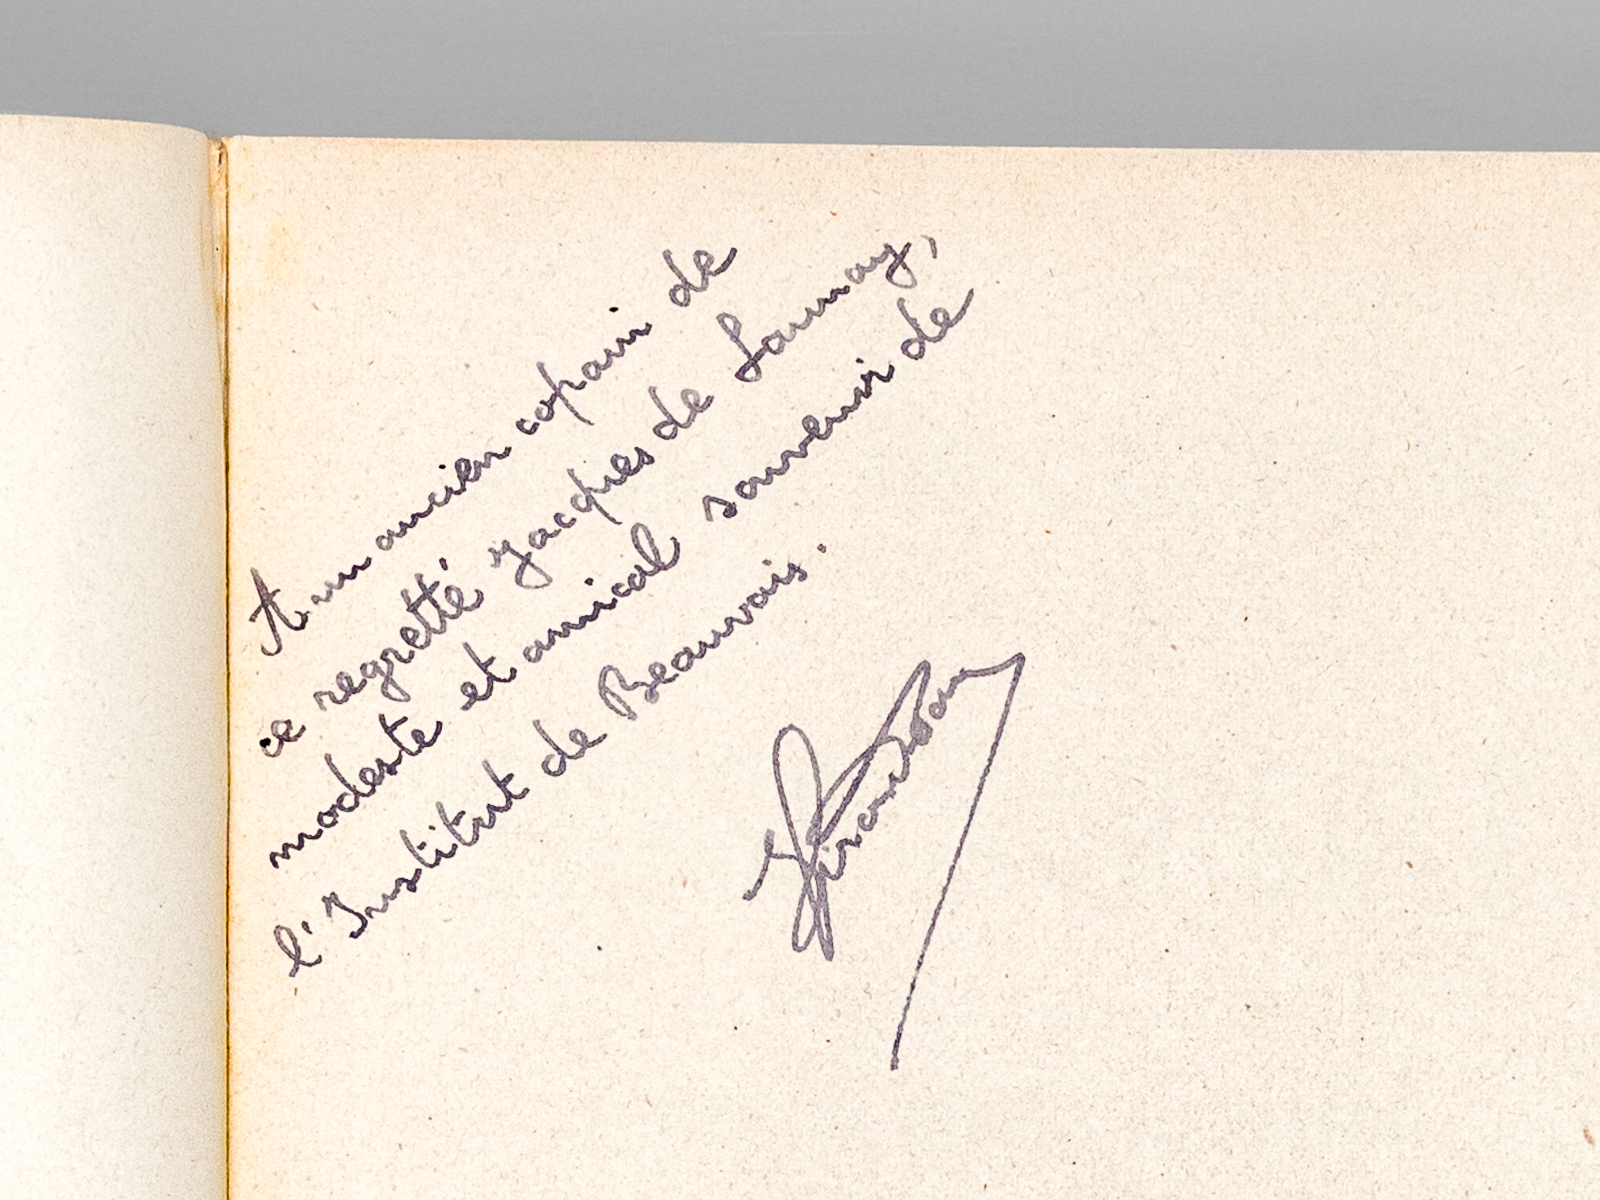 A un ancien copain de
ce regretté Jacques de Launay,
modeste et amical souvenir de
l'Institut de Beauvais.